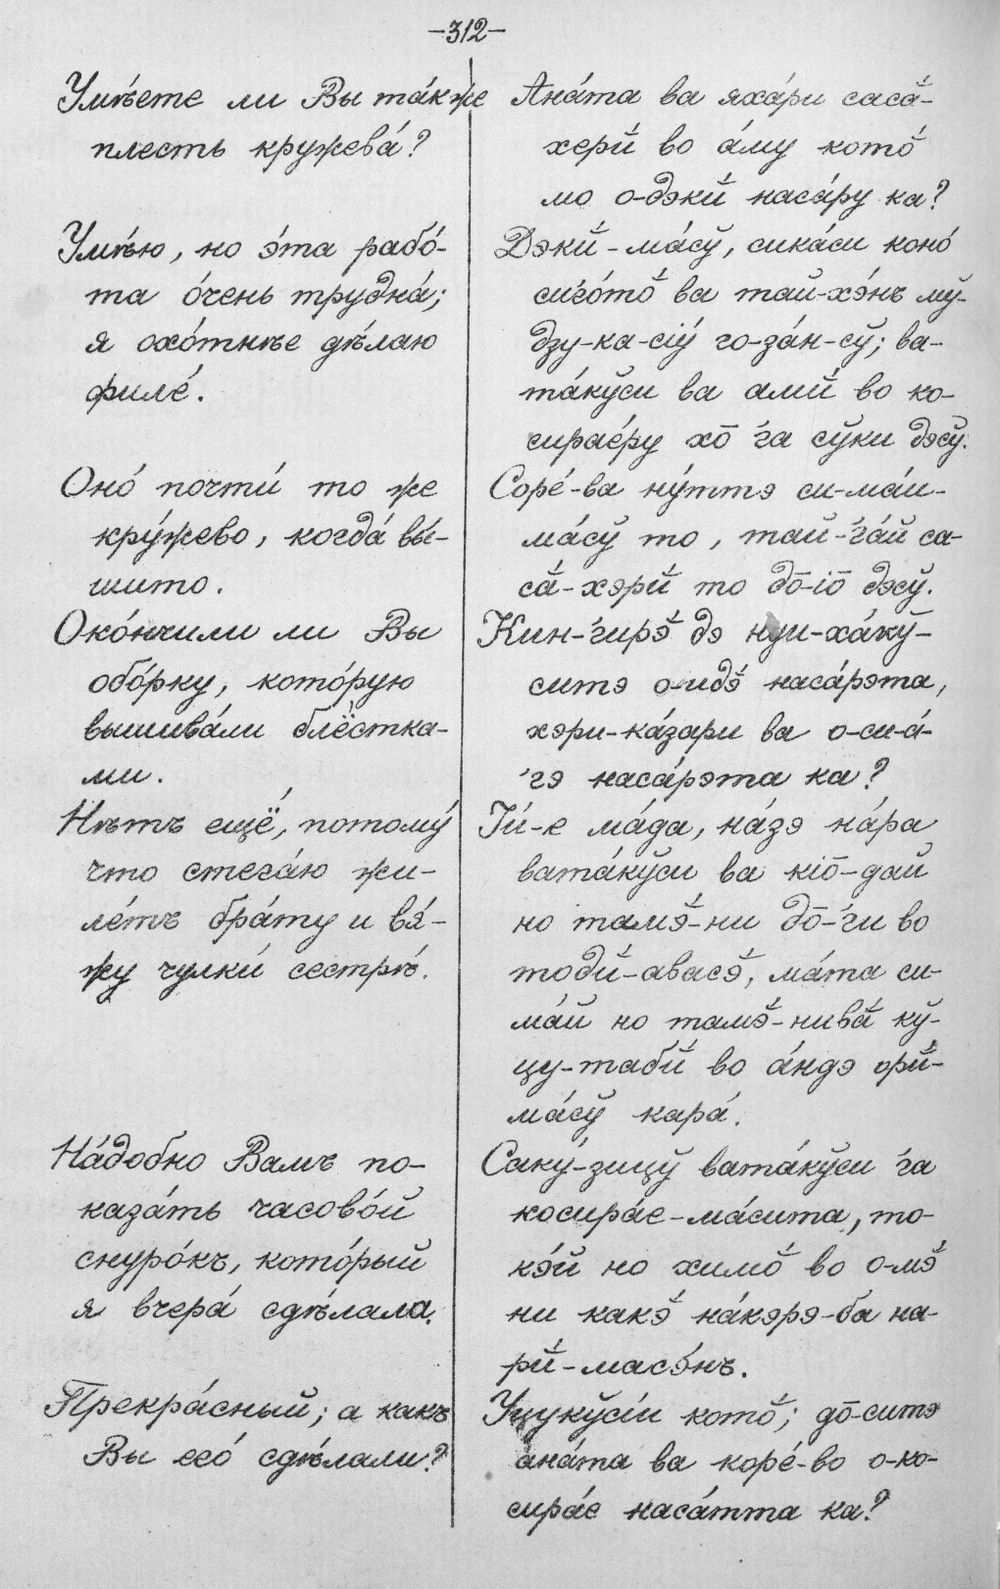 –312–
Умѣете ли Вы та́кже
плесть кружева́?
Умѣ́ю, но э́та рабо́-
та о́чень трудна́;
я охо́тнѣе дѣ́лаю
филе́.
Оно́ почти́ то же
кру́жево, когда́ вы́-
шито.
Око́нчили ли Вы
обо́рку, кото́рую
вышива́ли блёстка-
ми.
Нѣтъ ещё, потому́
что стега́ю жи-
ле́тъ бра́ту и вя́-
жу чулки́ сестрѣ́.
На́добно Вамъ по-
каза́ть часово́й
снуро́къ, кото́рый
я вчера́ сдѣ́лала.
Прекра́сный; а какъ
Вы его́ сдѣ́лали?
Ана́та ва яха́ри сасӑ́-
херй́ во а́му кото̆́
мо о-дэкй́ наса́ру ка?
Дэкй́-ма́сў, сика́си коно́
сиго́то̆ ва тай-хэ́нъ мў-
дзу-ка-сіу́ го-за́н-сў; ва-
та́кўси ва амй́ во ко-
сирае́ру хо̄ 'га сўки дэсў.
Соре́-ва ну́ттэ си-ма́и-
ма́сў то, тай-'га́й са-
сӑ́-хэрй́ то до̄-іо̄ дэсў.
Кин-'гирэ̆́ дэ нуи-ха́кў-
ситэ о-идэ̆́ наса́рэта,
хэри-ка́зари ва о-си-а́-
'гэ наса́рэта ка?
Іи́-е ма́да, на́зэ на́ра
вата́кўси ва кіо̄-дай
но тамэ̆́-ни до̄-'ги во
тодй́-авасэ̆́, ма́та си-
ма́й но тамэ̆́-нивӑ́ кў-
цу-табй́ во а́ндэ орй́-
ма́сў кара́.
Саку́-зицў вата́кўси 'га
косира́е-ма́сита, то-
кэ́й но химо̆́ во о-мэ̆́
ни какэ̆́ на́кэрэ-ба на-
рй́-масэ́нъ.
Уцукўсіи кото̆́; до̄-ситэ
ана́та ва коре́-во о-ко-
сира́е наса́тта ка?